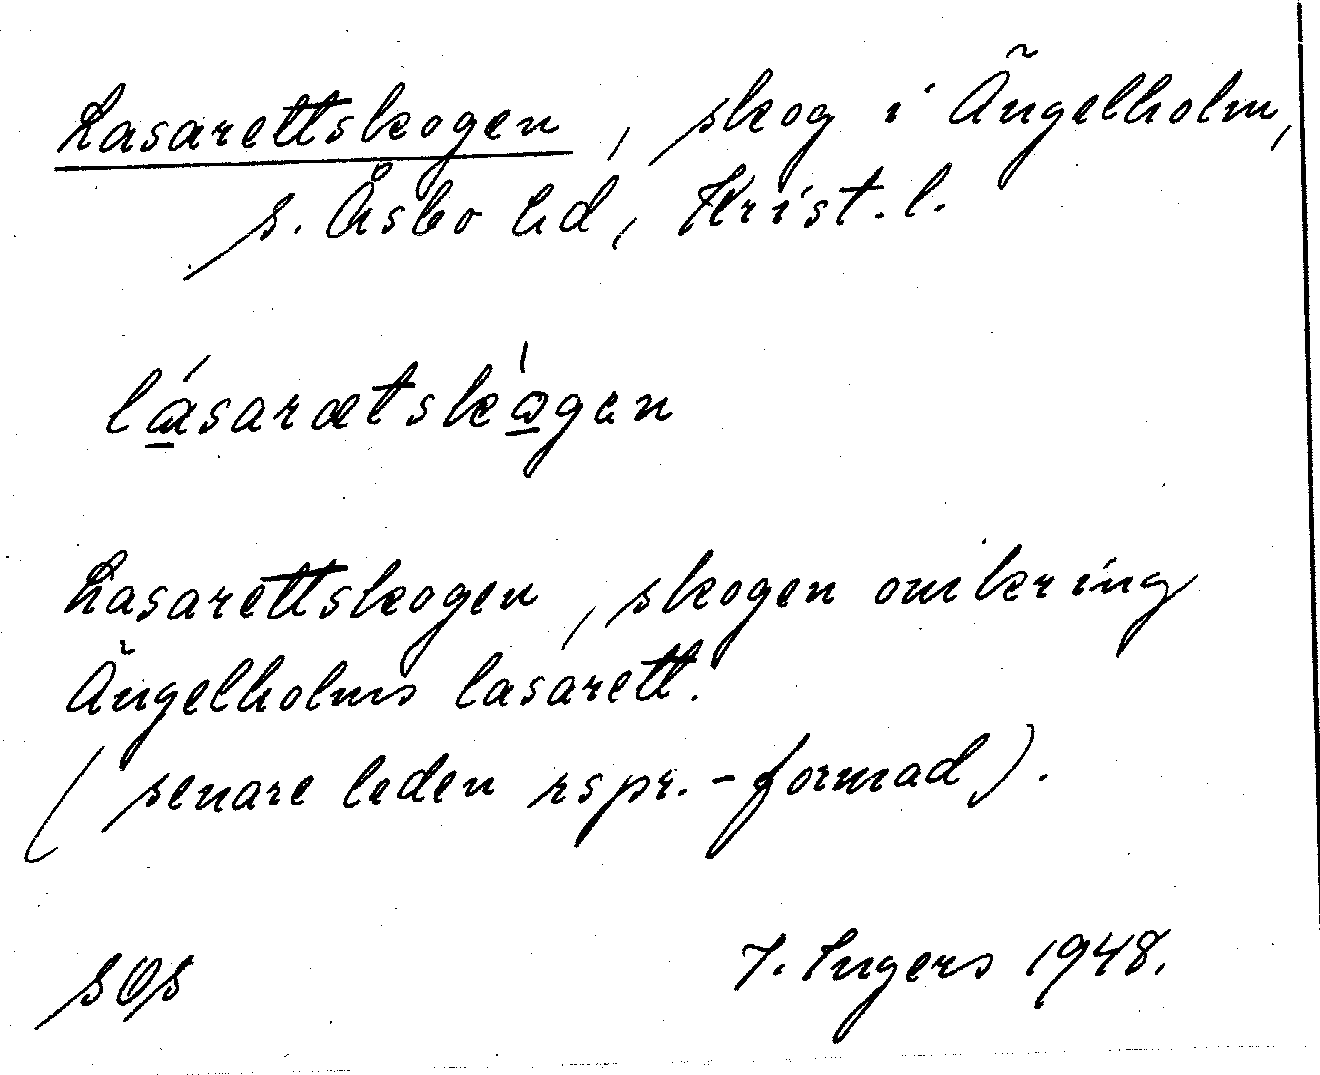 Lasarettskogen, skog i Ängelholm,
S. Åsbo hd, Krist. l.
lásarætskógen
Lasarettskogen, skogen omkring
Ängelholms lasarett.
(senare leden rspr.-formad).
SOS I. Ingers 1948.